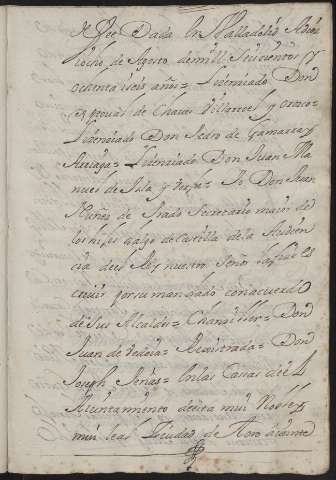 Dada en Valladolid a Diez
y ocho de Agosto de mill Seiscientos y
ochenta y seis años = Lizenciado Don
de Chaves Villarroel y
Lizenciado Don Pedro de Gamarra y
Arriaga = Lizenciado Don Juan Ma
nuel de Isla y = Yo Don Juan
Muñoz de Prado Secretario maior de
los hijos dalgo de Castilla de la Audien
cia del Rey nuestro Señor la fize es
crevir por su mandado con acuerdo
de sus Alcaldes = Chanziller = Don
Juan de = Rexistrada = Don
Joseph = En las Casas del
Aiuntamiento desta mui Noble y
mui leal Ciudad de Toro